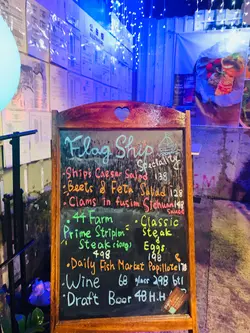 Flag Ship
Speciality
- Ship's Caesar Salad 138
- Beets & Feta Salad 128
- Clams in fusim Sichuan 148
Sauce
• 44 Farm
Prime Striploin
Steak (300g)
498
• Classic
Steak
&
Eggs
198
• Daily Fish Market Papillote 178
• Wine 68 glass 298 btl
• Draft Beer 48 H.H